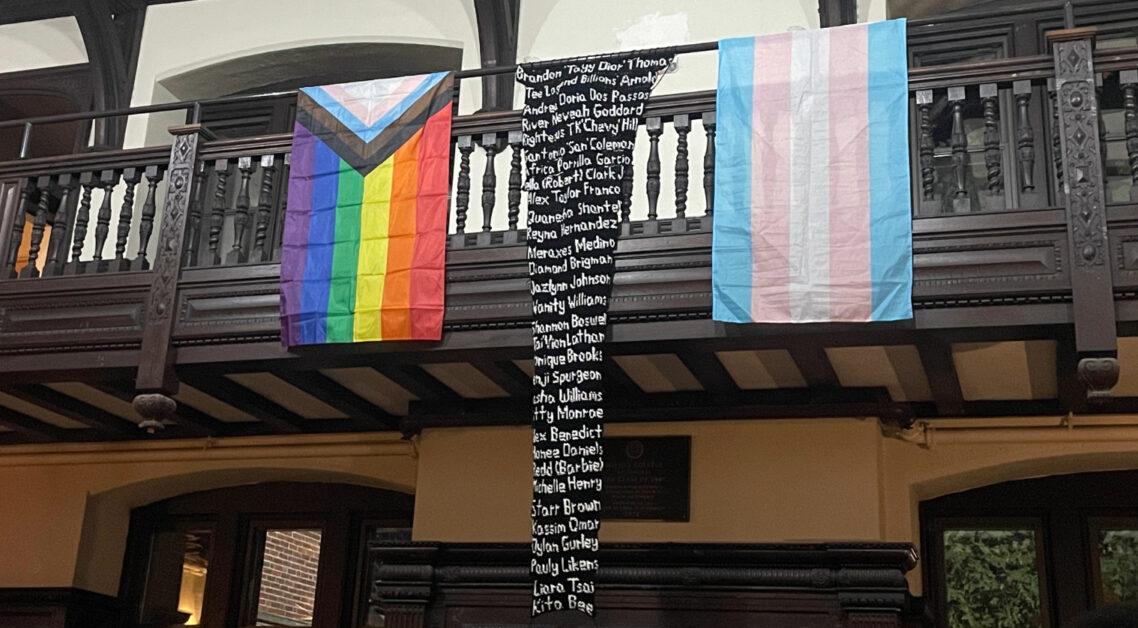 Brandon "Tayy Dior" Thomas
Tee Arnold
Andrea Doria Dos Passos
River Nevaeh Goddard
Righteous TK "Chevy" Hill
San Coleman
Africa Parrilla Garcia
(Robert) Clark J
Alex Taylor Franco
Shante
Reyna Hernandez
Meraxes Medina
Diamond Brigman
Jazlynn Johnson
Vanity Williams
Shannon Boswel
Tai'Vion Lathan
nique Brooks
nji Spurgeon
sha Williams
tty Monroe
lex Benedict
Monee Daniels
Redd (Barbie)
Michelle Henry
Starr Brown
Kassim Omar
Dylan Gurley
Pauly Likens
Liara Tsai
Kita Bee